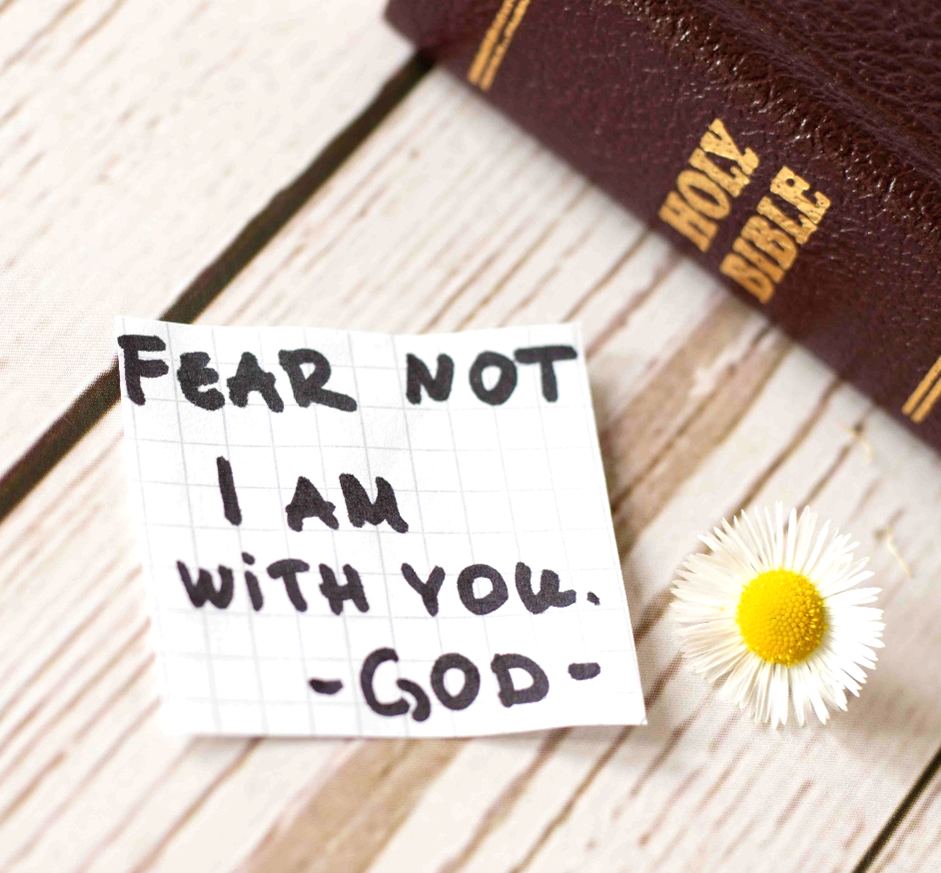 HOLY
BIBLE
FEAR NOT
I AM
WiTH YOU.
-GOD-